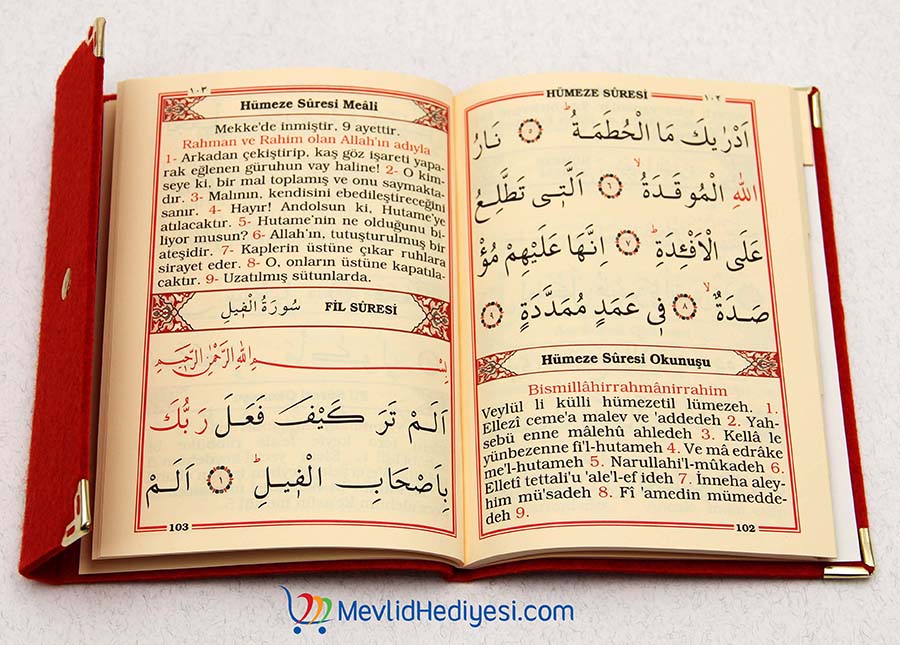 HÜMEZE SÛRESİ ١٠٢
اَدْرٰيكَ مَا الْحُطَمَةُۜ ٥ نَارُ
اللّٰهِ الْمُوقَدَةُۙ ٦ اَلَّت۪ي تَطَّلِعُ
عَلَى الْاَفْـِٔدَةِۜ ٧ اِنَّهَا عَلَيْهِمْ مُؤْ
صَدَةٌۙ ٨ ف۪ي عَمَدٍ مُمَدَّدَةٍ ٩
Hümeze Sûresi Okunuşu
Bismillâhirrahmânirrahim
Veylül li külli hümezetil lümezeh. 1.
Ellezî ceme'a malev ve 'addedeh 2. Yah-
sebü enne mâlehû ahledeh 3. Kellâ le
yünbezenne fi'l-hutameh 4. Ve mâ edrâke
me'l-hutameh 5. Narullahi'l-mûkadeh 6.
Elletî tettali'u 'ale'l-ef ideh 7. İnneha aley-
him mü'sadeh 8. Fî 'amedin mümedde-
deh 9.
102
١٠٣
Hümeze Sûresi Meâli
Mekke'de inmiştir, 9 ayettir.
Rahman ve Rahim olan Allah'ın adıyla
1- Arkadan çekiştirip, kaş göz işareti yapa-
rak eğlenen güruhun vay haline! 2- O kim-
seye ki, bir mal toplamış ve onu saymakta-
dır. 3- Malının, kendisini ebedileştireceğini
sanır. 4- Hayır! Andolsun ki, Hutame'ye
atılacaktır. 5- Hutame'nin ne olduğunu bi-
liyor musun? 6- Allah'ın, tutuşturulmuş bir
ateşidir. 7- Kaplerin üstüne çıkar ruhlara
sirayet eder. 8- O, onların üstüne kapatıla-
caktır. 9- Uzatılmış sütunlarda.
سُورَةُ الْف۪يلِ FİL SÛRESİ
بِسْمِ اللّٰهِ الرَّحْمٰنِ الرَّح۪يمِ
اَلَمْ تَرَ كَيْفَ فَعَلَ رَبُّكَ
بِاَصْحَابِ الْف۪يلِۜ ١ اَلَمْ
103
MevlidHediyesi.com